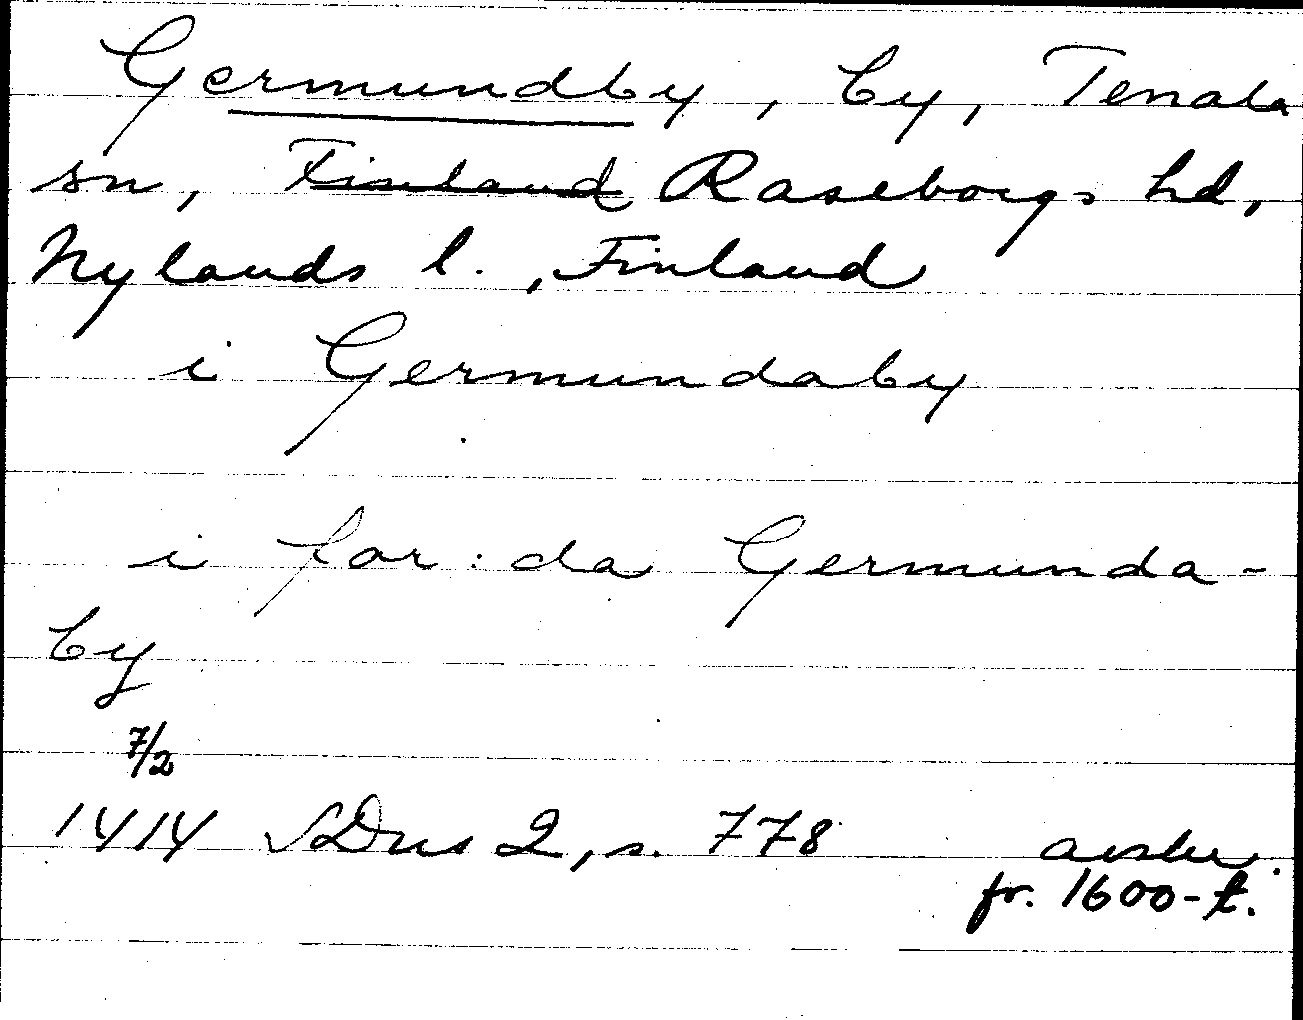 Germundby, by, Tenala
sn, Finland Raseborgs hd,
Nylands l., Finland
i Germundaby
i for:da Germunda-
by
7/2
1414 SDns 2, s. 778 avskr.
fr. 1600-t.